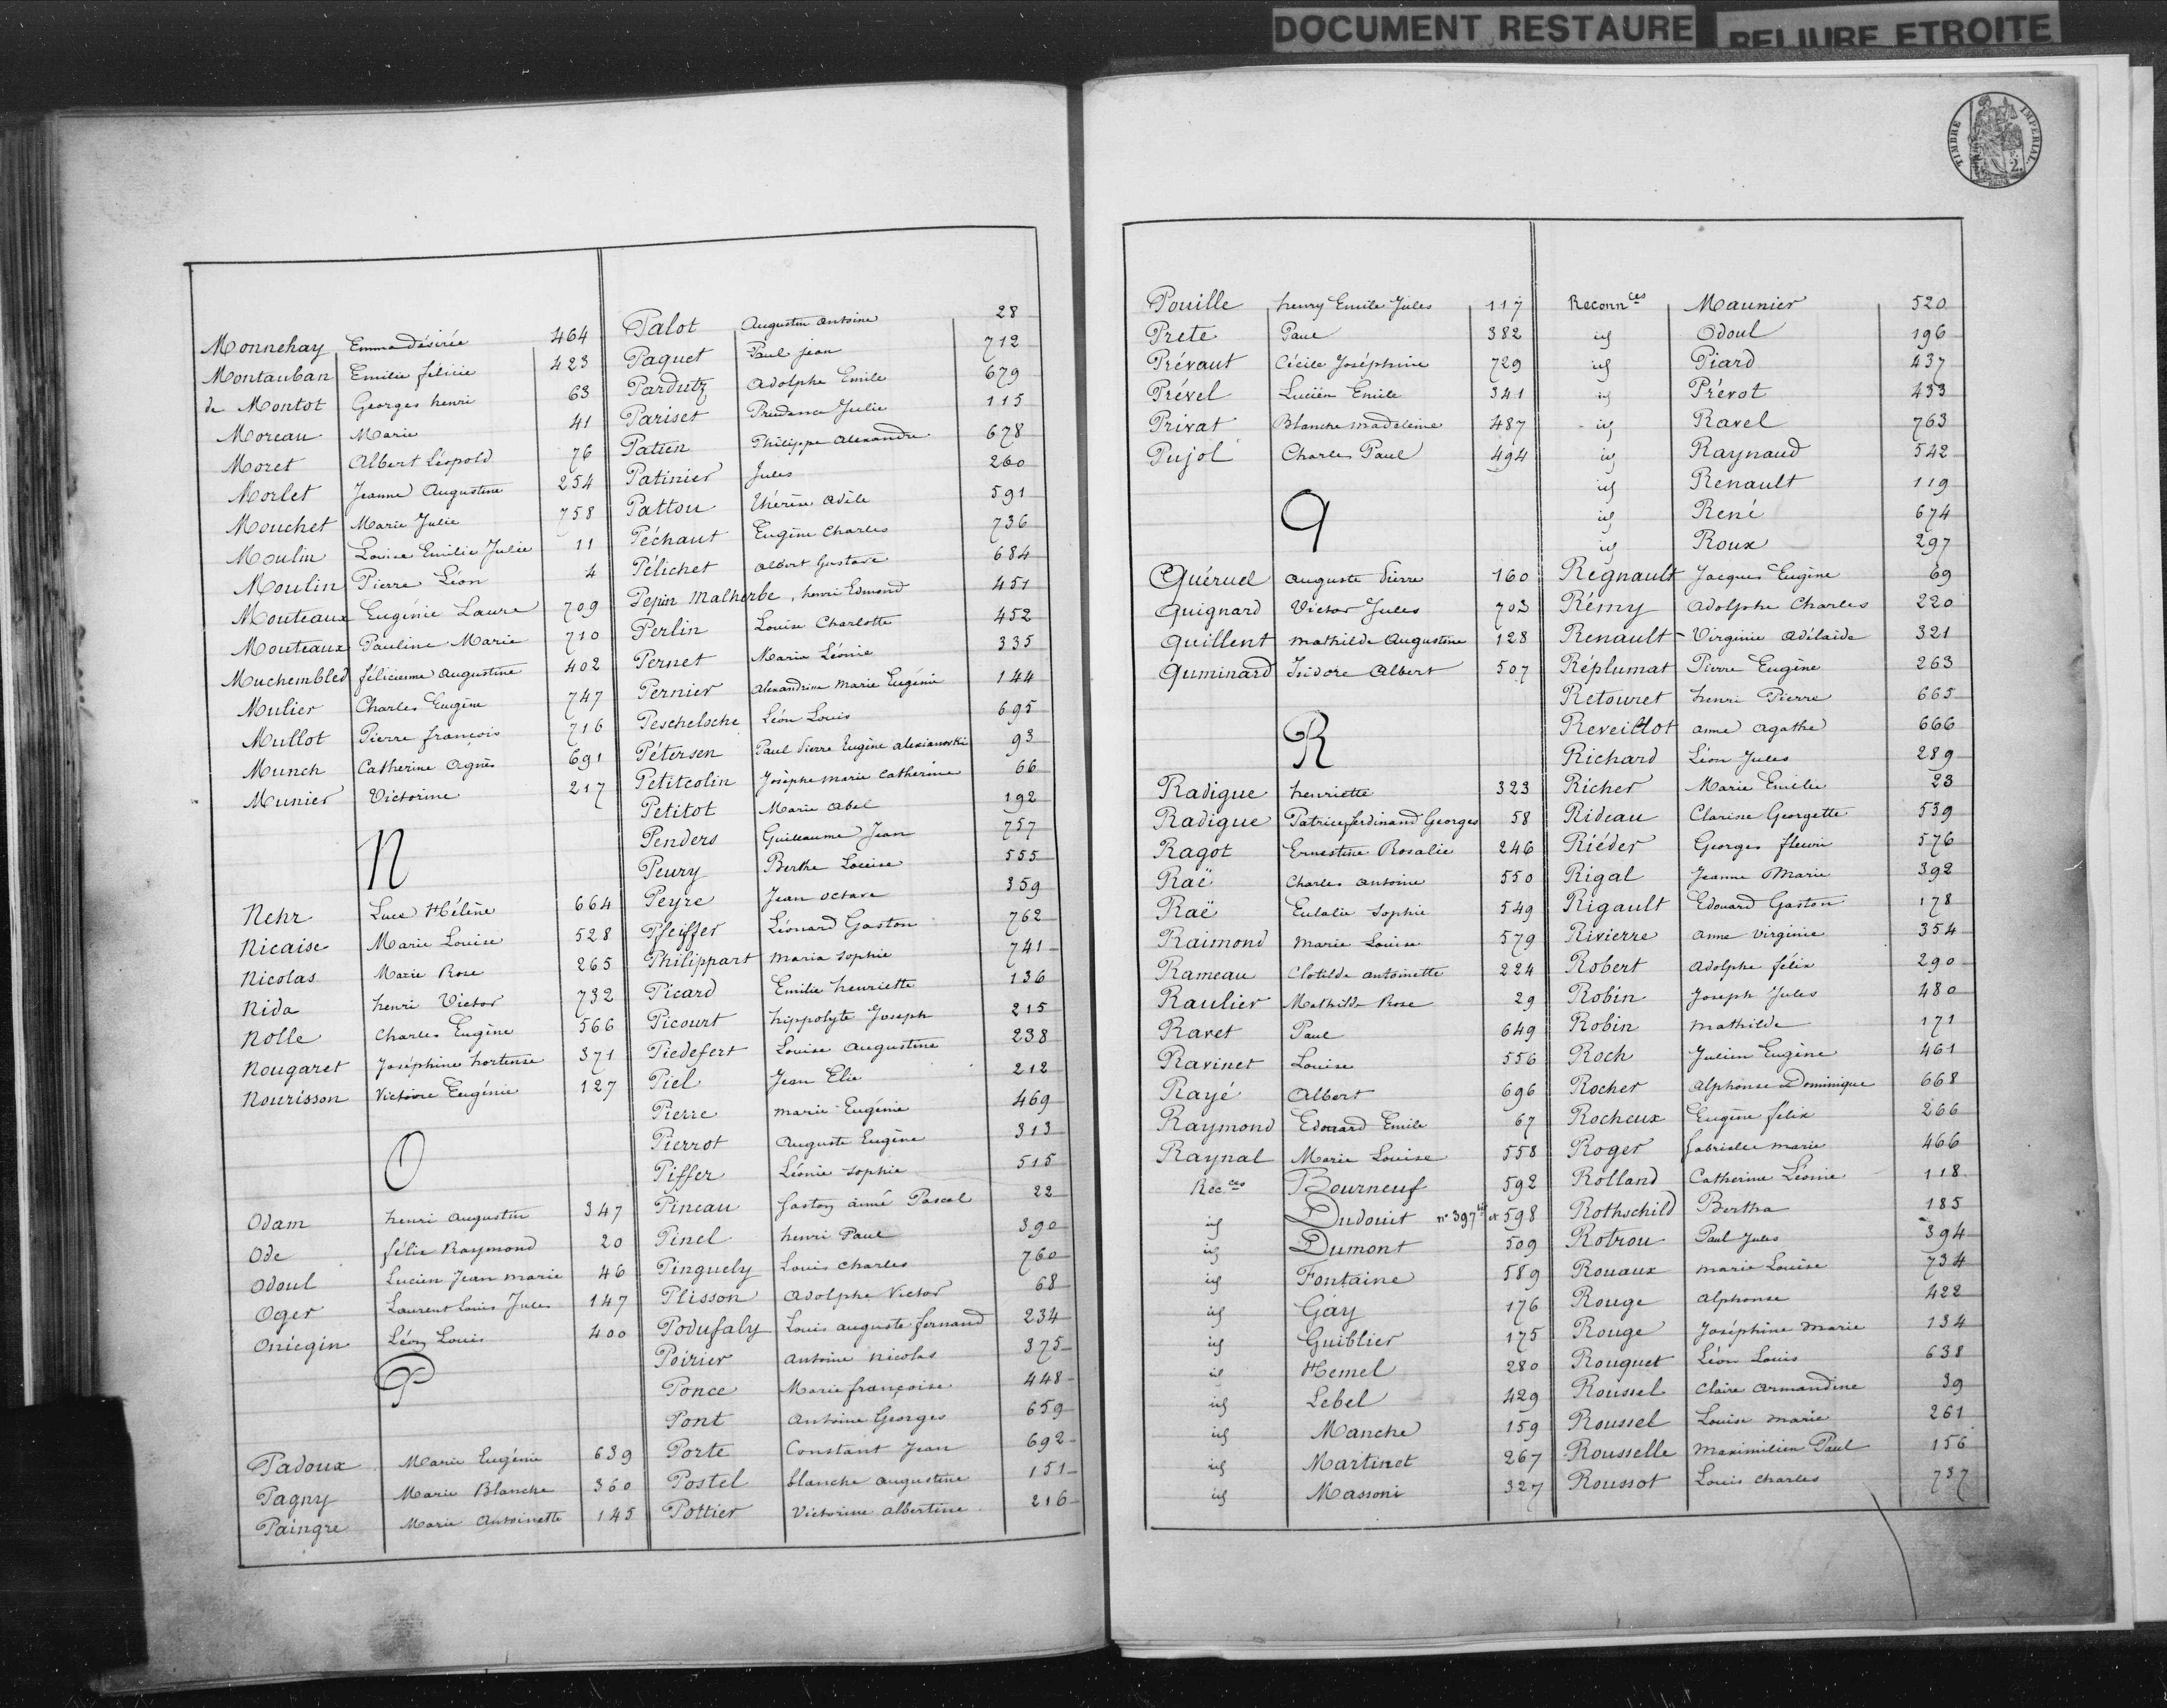 DOCUMENT RESTAURE
RELIURE ETROITE
TIMBRE IMPERIAL
2
Monnehay Emma désirée 464
Montauban Emilie félicie 423
de Montot Georges henri 63
Moreau Marie 41
Moret Albert Léopold 76
Morlet Jeanne Augustine 254
Mouchet Marie Julie 758
Moulin Louise Emilie Julie 11
Moulin Pierre Léon 4
Mouteaux Eugénie Laure 709
Mouteaux Pauline Marie 710
Muchembled félicienne augustine 402
Mulier Charles Eugène 747
Mullot Pierre françois 716
Munch Catherine Agnès 691
Munier Victorine 217
N
Nehr Luce Hélène 664
Nicaise Marie Louise 528
Nicolas Marie Rose 265
Nida henri Victor 732
Nolle Charles Eugène 566
Nougaret Joséphine hortense 371
Nourisson Victoire Eugénie 127
O
Odam henri augustin 347
Ode félix Raymond 20
Odoul Lucien Jean marie 46
Oger Laurent Louis Jules 147
Oniegin Léon Louis 400
P
Padoux Marie Eugénie 639
Pagny Marie Blanche 360
Paingre Marie Antoinette 145
Palot Augustin antoine 28
Paquet Paul jean 712
Pardutz Adolphe Emile 679
Pariset Prudence Julie 115
Patien Philippe alexandre 678
Patinier Jules 260
Pattou thérèse adèle 591
Péchaut Eugène Charles 736
Pélichet albert Gustave 684
Pepin Malherbe, henri Edmond 451
Perlin Louise Charlotte 452
Pernet Maria Léonie 335
Pernier alexandrine marie Eugénie 144
Pescheloche Léon Louis 695
Pétersen Paul Pierre Eugène alexianovski 93
Petitcolin Josèphe marie catherine 66
Petitot Marie abel 192
Penders Guillaume Jean 757
Peury Berthe Louise 555
Peyre Jean octave 359
Pfeiffer Léonard Gaston 762
Philippart maria sophie 741
Picard Emilie henriette 136
Picourt hippolyte Joseph 215
Piedefert Louise augustine 238
Piel Jean Elie 212
Pierre marie Eugénie 469
Pierrot Auguste Eugène 313
Piffer Léonie sophie 515
Pineau Gaston aimé Pascal 22
Pinel henri Paul 390
Pinguely Louis charles 760
Plisson adolphe Victor 68
Podufaly Louis auguste fernand 234
Poirier antoine nicolas 375
Ponce Marie françoise 448
Pont antoine Georges 659
Porte Constant Jean 692
Postel blanche augustine 151
Pottier Victorine albertine 216
Pouille henry Emile Jules 117
Prete Paul 382
Prévaut Cécile Joséphine 729
Prével Lucien Emile 341
Privat Blanche madeleine 487
Pujol Charles Paul 494
Q
Quéruel auguste Pierre 160
Quignard Victor Jules 703
Quillent mathilde augustine 128
Quminard Isidore Albert 507
R
Radigue henriette 323
Radigue Patrice ferdinand Georges 58
Ragot Ernestine Rosalie 246
Raë Charles antoine 550
Raë Eulalie sophie 549
Raimond marie Louise 579
Rameau Clotilde antoinette 224
Raulier Mathilde Rose 29
Ravet Paul 649
Ravinet Louise 556
Rayé Albert 696
Raymond Edouard Emile 67
Raynal Marie Louise 558
Rec.ces Bourneuf 592
id Dudouit n° 397 bis et 598
id Dumont 509
id Fontaine 589
id Gay 176
id Guiblier 175
id Hemel 280
id Lebel 429
id Manche 159
id Martinet 267
id Massoni 327
Reconnces Maunier 520
id Odoul 196
id Piard 437
id Prévot 433
id Ravel 763
id Raynaud 542
id Renault 119
id René 674
id Roux 297
Regnault Jacques Eugène 69
Rémy Adolphe Charles 220
Renault Virginie Adélaïde 321
Réplumat Pierre Eugène 263
Retouret henri Pierre 665
Reveillot anne agathe 666
Richard Léon Jules 289
Richer Marie Emilie 23
Rideau Clarisse Georgette 539
Riéder Georges fleuri 576
Rigal Jeanne Marie 392
Rigault Edouard Gaston 178
Rivierre anne virginie 354
Robert Adolphe félix 290
Robin Joseph Jules 480
Robin mathilde 171
Roch Julien Eugène 461
Rocher alphonse Dominique 668
Rocheux Eugène félix 266
Roger Gabrielle marie 466
Rolland Catherine Léonie 118
Rothschild Bertha 185
Rotrou Paul Jules 394
Rouaux marie Louise 734
Rouge alphonse 422
Rouge Joséphine marie 134
Rouquet Léon Louis 638
Roussel Claire armandine 39
Roussel Louise marie 261
Rousselle maximilien Paul 156
Roussot Louis charles 737